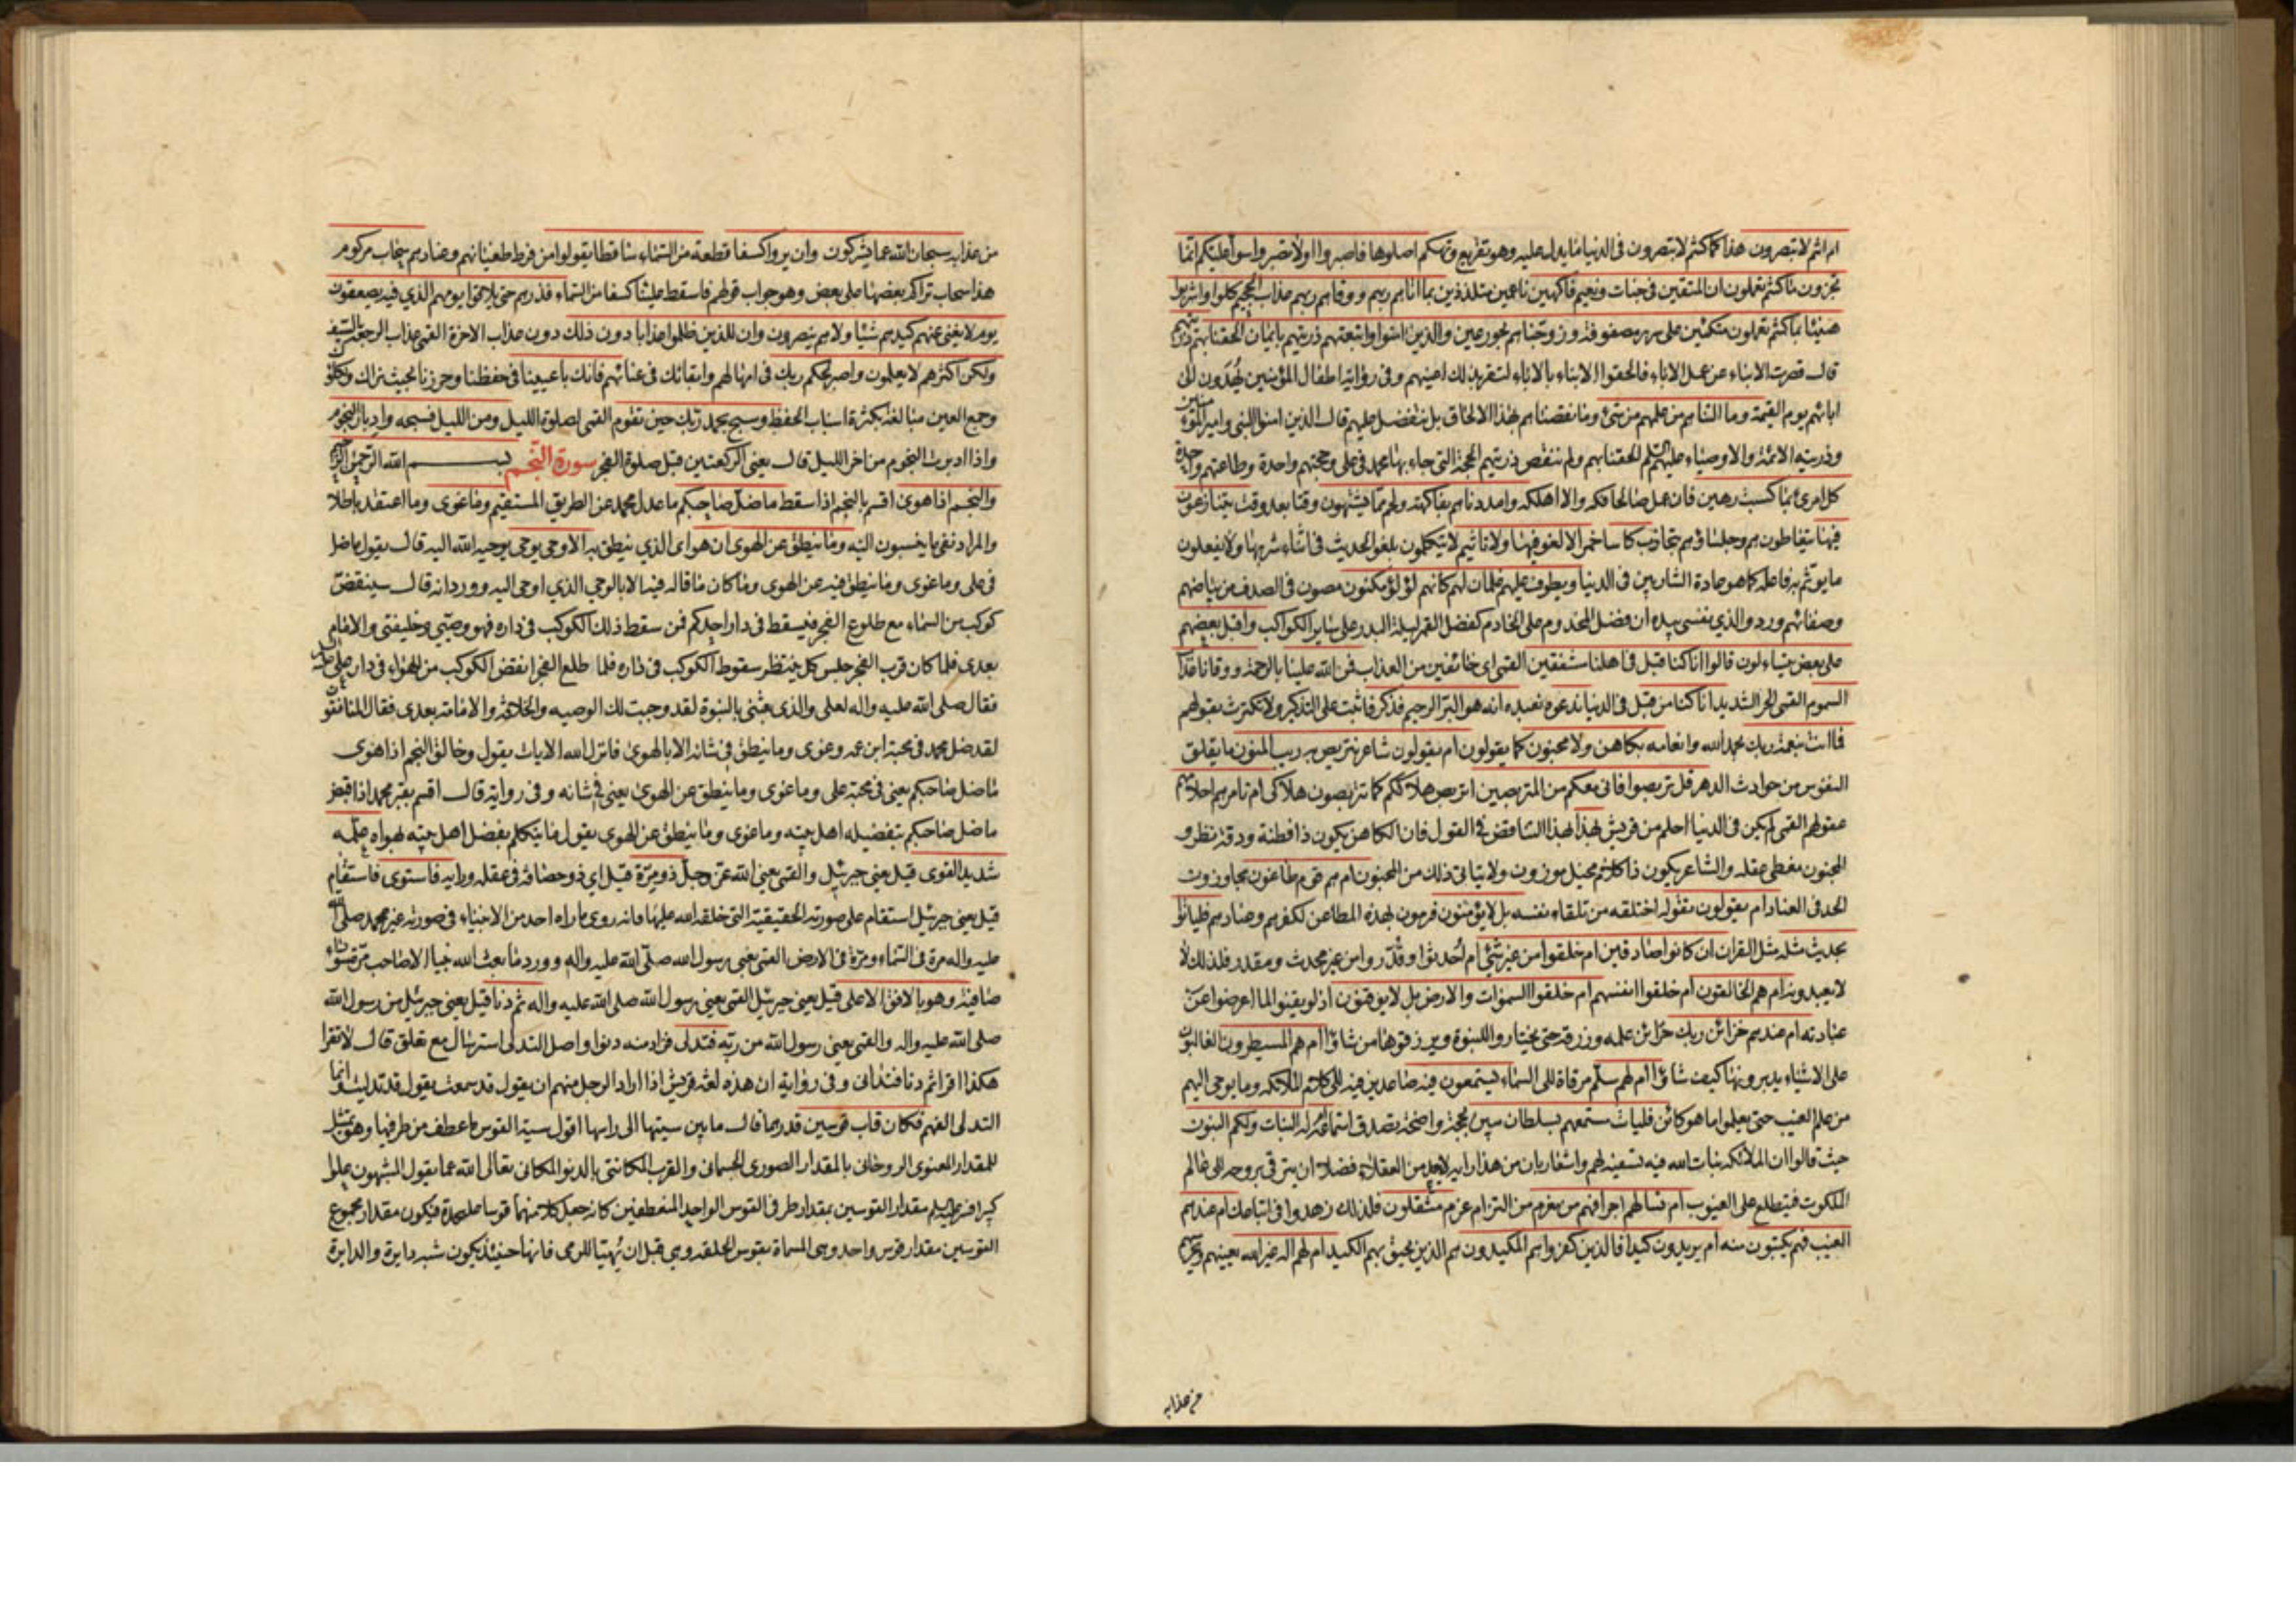 ام انتم لا تبصرون هذا كما كنتم لا تبصرون فى الدنيا ما يدل عليه وهو تقريع وتهكم اصلوها فاصبروا اولا تصبروا سواء عليكم انما
تجزون ما كنتم تعملون ان المتقين فى جنات ونعيم فاكهين ناعمين متلذذين بما اتاهم ربهم ووقاهم ربهم عذاب الجحيم كلوا واشربوا
هنيئا بما كنتم تعملون متكئين على سرر مصفوفة وزوجناهم بحور عين والذين امنوا واتبعتهم ذريتهم بايمان الحقنا بهم ذريتهم
قال قصرت الابناء عن عمل الاباء فالحقوا الابناء بالاباء لتقر بذلك اعينهم وفى رواية اطفال المؤمنين يهدون الى
ابائهم يوم القيمة وما التناهم من عملهم من شئ وما نقصناهم بهذا الالحاق بل نتفضل عليهم قال الذين امنوا النبى وامير المؤمنين
وذريته الائمة والاوصياء عليهم السلم الحقنا بهم ولم تنقص ذريتهم الحجة التى جاء بها محمد فى على وحجتهم واحدة وطاعتهم واحدة
كل امرئ بما كسب رهين فان عمل صالحا فكه والا اهلكه وامددناهم بفاكهة ولحم مما يشتهون وقتا بعد وقت يتنازعون
فيها يتعاطون هم وجلساؤهم بتجاذب كاسا خمرا لا لغو فيها ولا تاثيم لا يتكلمون بلغو الحديث فى اثناء شربها ولا يفعلون
ما يؤثم به فاعله كما هو عادة الشاربين فى الدنيا ويطوف عليهم غلمان لهم كانهم لؤلؤ مكنون مصون فى الصدف من بياضهم
وصفائهم ورد والذي نفسى بيده ان فضل المخدوم على الخادم كفضل القمر ليلة البدر على ساير الكواكب واقبل بعضهم
على بعض يتساءلون قالوا انا كنا قبل فى اهلنا مشفقين القمى اى خائفين من العذاب فمن الله علينا بالرحمة ووقانا عذاب
السموم القمى الحر الشديد انا كنا من قبل فى الدنيا ندعوه نعبده انه هو البر الرحيم فذكر فاثبت على التذكير ولا تكترث بقولهم
فما انت بنعمة ربك بحمد الله وانعامه بكاهن ولا مجنون كما يقولون ام يقولون شاعر نتربص به ريب المنون ما يقلق
النفوس من حوادث الدهر قل تربصوا فانى معكم من المتربصين اتربص هلاككم كما تتربصون هلاكى ام تامرهم احلامهم
عقولهم القمى لم يكن فى الدنيا احلم من قريش بهذا لهذا التناقض فى القول فان الكاهن يكون ذا فطنة ودقة نظر و
المجنون مغطى عقله والشاعر يكون ذا كلام مخيل موزون ولا يتاتى ذلك من المجنون ام هم قوم طاغون مجاوزون
الحد فى العناد ام يقولون تقوله اختلقه من تلقاء نفسه بل لا يؤمنون فيرمون بهذه المطاعن لكفرهم وعنادهم فلياتوا
بحديث مثله مثل القران ان كانوا صادقين ام خلقوا من غير شئ ام احدثوا وقدروا من غير محدث ومقدر فلذلك لا
لا يعبدونه ام هم الخالقون ام خلقوا انفسهم ام خلقوا السموات والارض بل لا يوقنون اذ لو يقنوا لما اعرضوا عن
عبادته ام عندهم خزائن ربك خزائن علمه ورزقه حتى يختاروا للنبوة ويرزقوها من شاؤا ام هم المسيطرون الغالبون
على الاشياء يدبرونها كيف شاؤا ام لهم سلم مرقاة الى السماء يستمعون فيه صاعدين فيه الى كلام الملائكة وما يوحى اليهم
من علم الغيب حتى يعلموا ما هو كائن فليات مستمعهم بسلطان مبين بحجة واضحة تصدق استماعه ام له البنات ولكم البنون
حيث قالوا ان الملائكة بنات الله فيه تسفيه لهم واشعار بان من هذا رايه لا يعد من العقلاء فضلا ان يترقى بروحه الى عالم
الملكوت فيتطلع على الغيوب ام تسالهم اجرا فهم من مغرم من التزام غرم مثقلون فلذلك زهدوا فى اتباعك ام عندهم
الغيب فهم يكتبون منه ام يريدون كيدا فالذين كفروا هم المكيدون هم الذين يحيق بهم الكيد ام لهم اله غير الله يعينهم ويحرسهم
من عذابه
من عذابه سبحان الله عما يشركون وان يروا كسفا قطعة من السماء ساقطا يقولوا من فرط طغيانهم وعنادهم سحاب مركوم
هذا سحاب تراكم بعضها على بعض وهو جواب قولهم فاسقط علينا كسفا من السماء فذرهم حتى يلاقوا يومهم الذي فيه يصعقون
يوم لا يغنى عنهم كيدهم شيئا ولا هم ينصرون وان للذين ظلموا عذابا دون ذلك دون عذاب الاخرة القمى عذاب الرجعة بالسيف
ولكن اكثرهم لا يعلمون واصبر لحكم ربك فى امهالهم وابقائك فى عنائهم فانك باعيننا فى حفظنا وحرزنا بحيث نراك ونكلؤك
وجمع العين مبالغة بكثرة اسباب الحفظ وسبح بحمد ربك حين تقوم القمى لصلوة الليل ومن الليل فسبحه وادبار النجوم
واذا ادبرت النجوم من اخر الليل قال يعنى الركعتين قبل صلوة الفجر سورة النجم بسم الله الرحمن الرحيم
والنجم اذا هوى اقسم بالنجم اذا سقط ما ضل صاحبكم ما عدل محمد عن الطريق المستقيم وما غوى وما اعتقد باطلا
والمراد نفى ما ينسبون اليه وما ينطق عن الهوى ان هو اى الذي ينطق به الا وحى يوحى يوحيه الله اليه قال يقول ما ضل
فى على وما غوى وما ينطق فيه عن الهوى وما كان ما قاله فيه الا بالوحى الذي اوحى اليه وورد انه قال سينقض
كوكب من السماء مع طلوع الفجر فيسقط فى دار احدكم فمن سقط ذلك الكوكب فى داره فهو وصيى وخليفتى والامام
بعدى فلما كان قرب الفجر جلس كل ينتظر سقوط الكوكب فى داره فلما طلع الفجر انقض الكوكب من الهواء فى دار على
فقال صلى الله عليه واله لعلى والذى بعثنى بالنبوة لقد وجبت لك الوصيه والخلافة والامامة بعدى فقال المنافقون
لقد ضل محمد فى محبة ابن عمه وغوى وما ينطق فى شانه الا بالهوى فانزل الله الايات يقول وخالق النجم اذا هوى
ما ضل صاحبكم يعنى فى محبة على وما غوى وما ينطق عن الهوى يعنى فى شانه وفى رواية قال اقسم بقبر محمد اذا قبض
ما ضل صاحبكم بتفضيله اهل بيته وما غوى وما ينطق عن الهوى يقول ما يتكلم بفضل اهل بيته بهواه علمه
شديد القوى قيل يعنى جبرئيل والقمى يعنى الله عز وجل ذو مرة قيل اي ذو حصافة فى عقله ورايه فاستوى فاستقام
قيل يعنى جبرئيل استقام على صورته الحقيقية التى خلقه الله عليها فانه روى ما راه احد من الانبياء فى صورته غير محمد صلى الله
عليه واله مرة فى السماء ومرة فى الارض القمى يعنى رسول الله صلى الله عليه واله وورد ما بعث الله نبيا الا صاحب مرة سوداء
صافية وهو بالافق الاعلى قيل يعنى جبرئيل القمى يعنى رسول الله صلى الله عليه واله ثم دنا قيل يعنى جبرئيل من رسول الله
صلى الله عليه واله والقمى يعنى رسول الله من ربه فتدلى فزاد منه دنوا واصل التدلى استرسال مع تعلق قال لا تقرا
هكذا اقرا ثم دنا فتدانى وفى رواية ان هذه لغة قريش اذا اراد الرجل منهم ان يقول قد سمعت يقول قد تدليت وانما
التدلى الفهم فكان قاب قوسين قدرهما قال ما بين سيتها الى راسها اقول سية القوس ما عطف من طرفيها وهو تمثيل
للمقدار المعنوى الروحانى بالمقدار الصورى الجسمانى والقرب المكانتى بالدنو المكانى تعالى الله عما يقول المشبهون علوا
كبيرا فسر عليه السلم مقدار القوسين بمقدار طرفى القوس الواحد المنعطفين كانه جعل كلا منهما قوسا على حدة فيكون مقدار مجموع
القوسين مقدار قوس واحد وهى المسماة بقوس الحلقه وهى قبل ان يهيا للرمى فانها حينئذ يكون شبه دايرة والدايرة